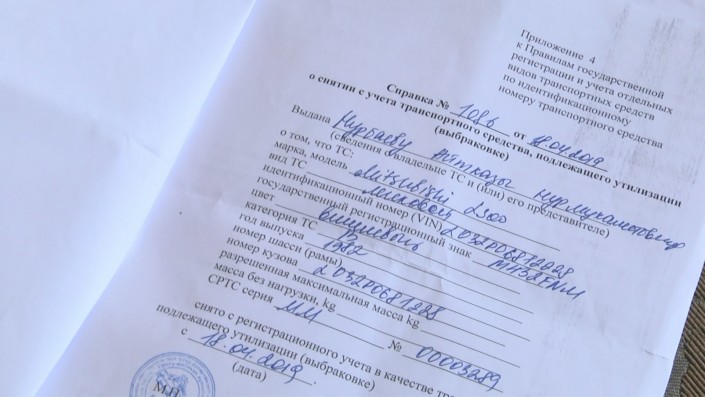 Приложение 4
к Правилам государственной
регистрации и учета отдельных
видов транспортных средств
по идентификационному
номеру транспортного средства
Справка № 1086 от 18.04.2019
о снятии с учета транспортного средства, подлежащего утилизации
(выбраковке)
Выдана Нурбаеву Айтказы Нурмухаметовичу
(сведения о владельце ТС и (или) его представителе)
о том, что ТС:
марка, модель Mitsubishi L300
вид ТС легковой
идентификационный номер (VIN)
государственный регистрационный знак
цвет
категория ТС
год выпуска 1982
номер шасси (рамы)
номер кузова
разрешенная максимальная масса kg
масса без нагрузки, kg
СРТС серия MM № 00003289
снято с регистрационного учета в качестве
подлежащего утилизации (выбраковке)
с 18.04.2019.
(дата)
М.П.